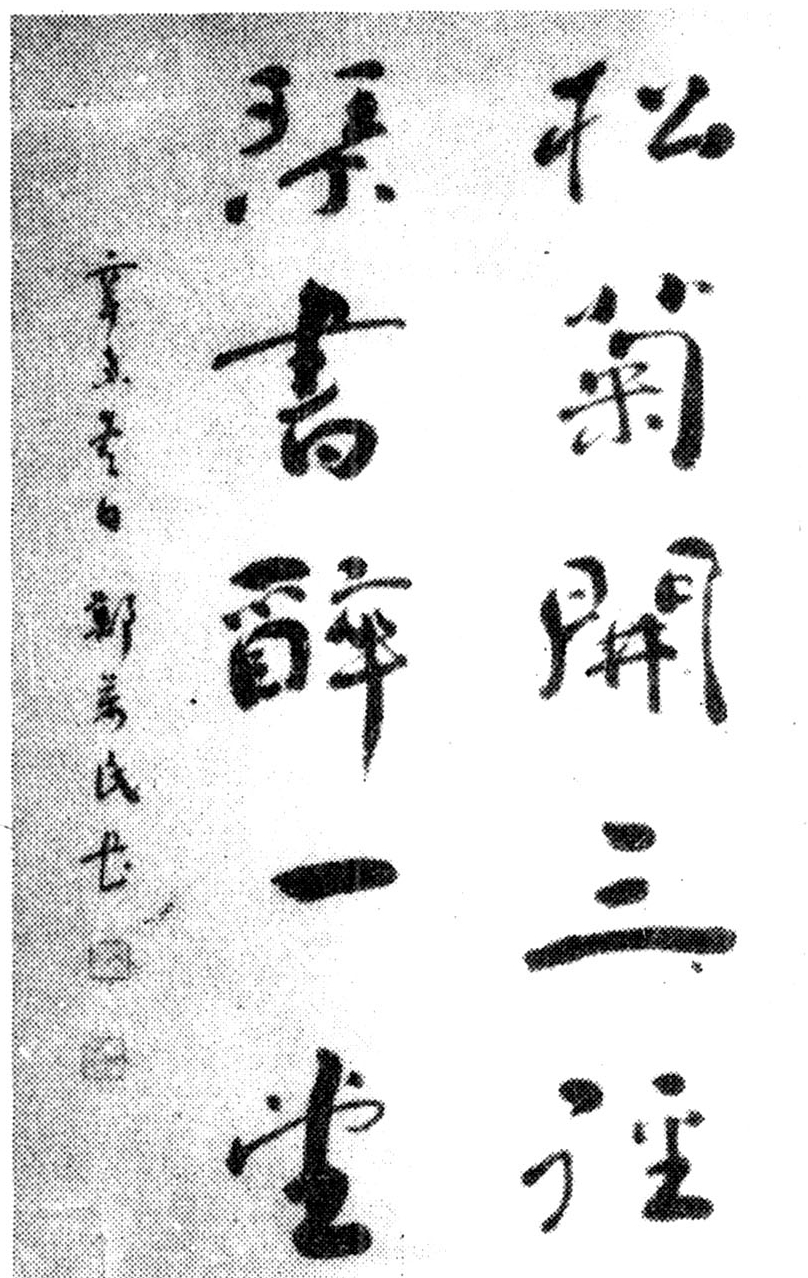 松菊開三徑
琴書醉一堂
辛未冬日 鄭 民書